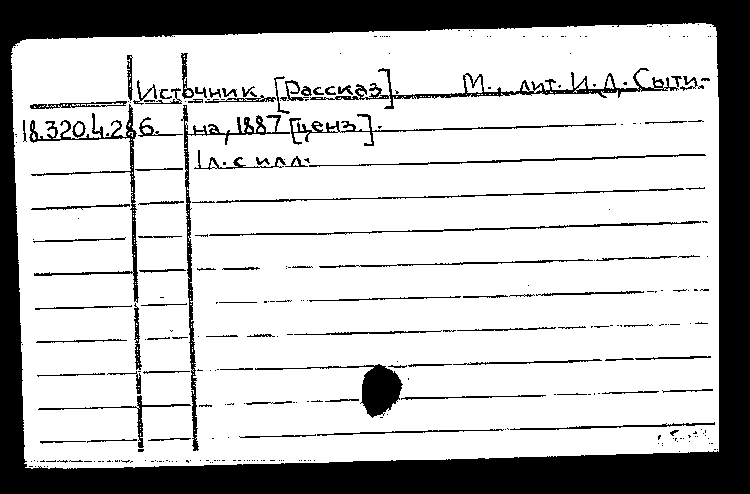 Источник. [Рассказ]. М., лит. И.Д. Сыти-
18.320.4.286. на, 1887 [ценз.].
1 л. с илл.